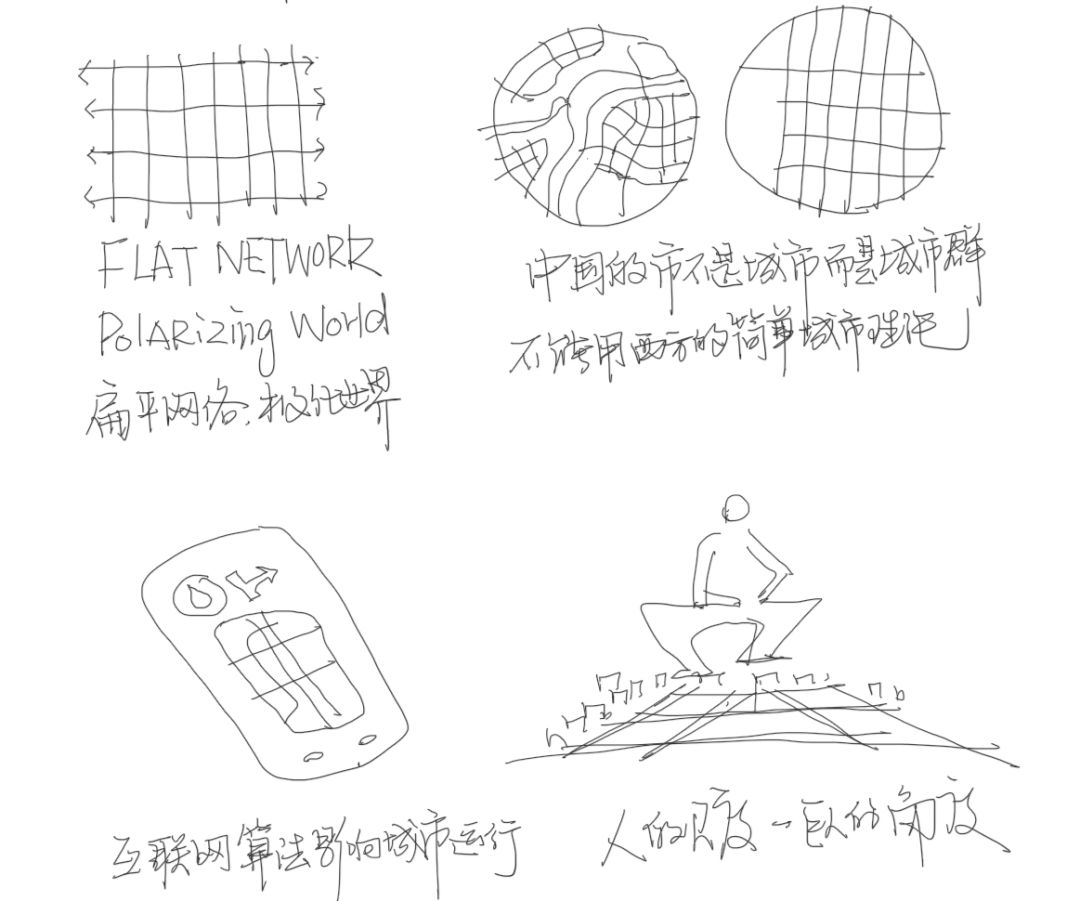 FLAT NETWORK
Polarizing World
扁平网络.极化世界
中国的市不是城市而是城市群
不能用西方的简单城市理论
互联网算法影响城市运行
人的尺度-巨人的角度